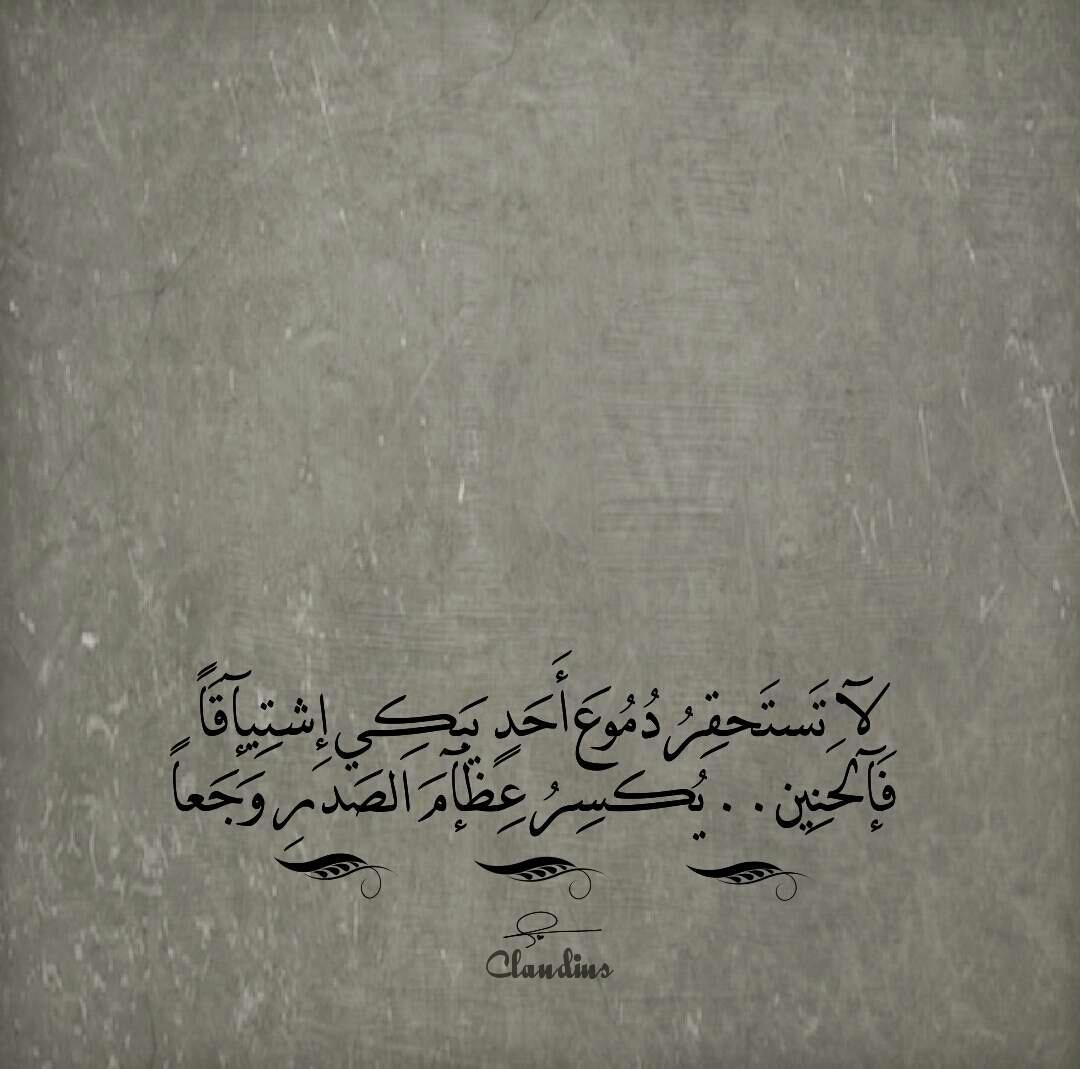 لآ تَستَحقِرُ دُمُوعَ أَحَدٍ يَبكِي إِشتِيآقَاً
فَإَلحَنِين . . يُكسِرُ عِظَآمَ اَلصَدرِ وَجَعاً
Claudius